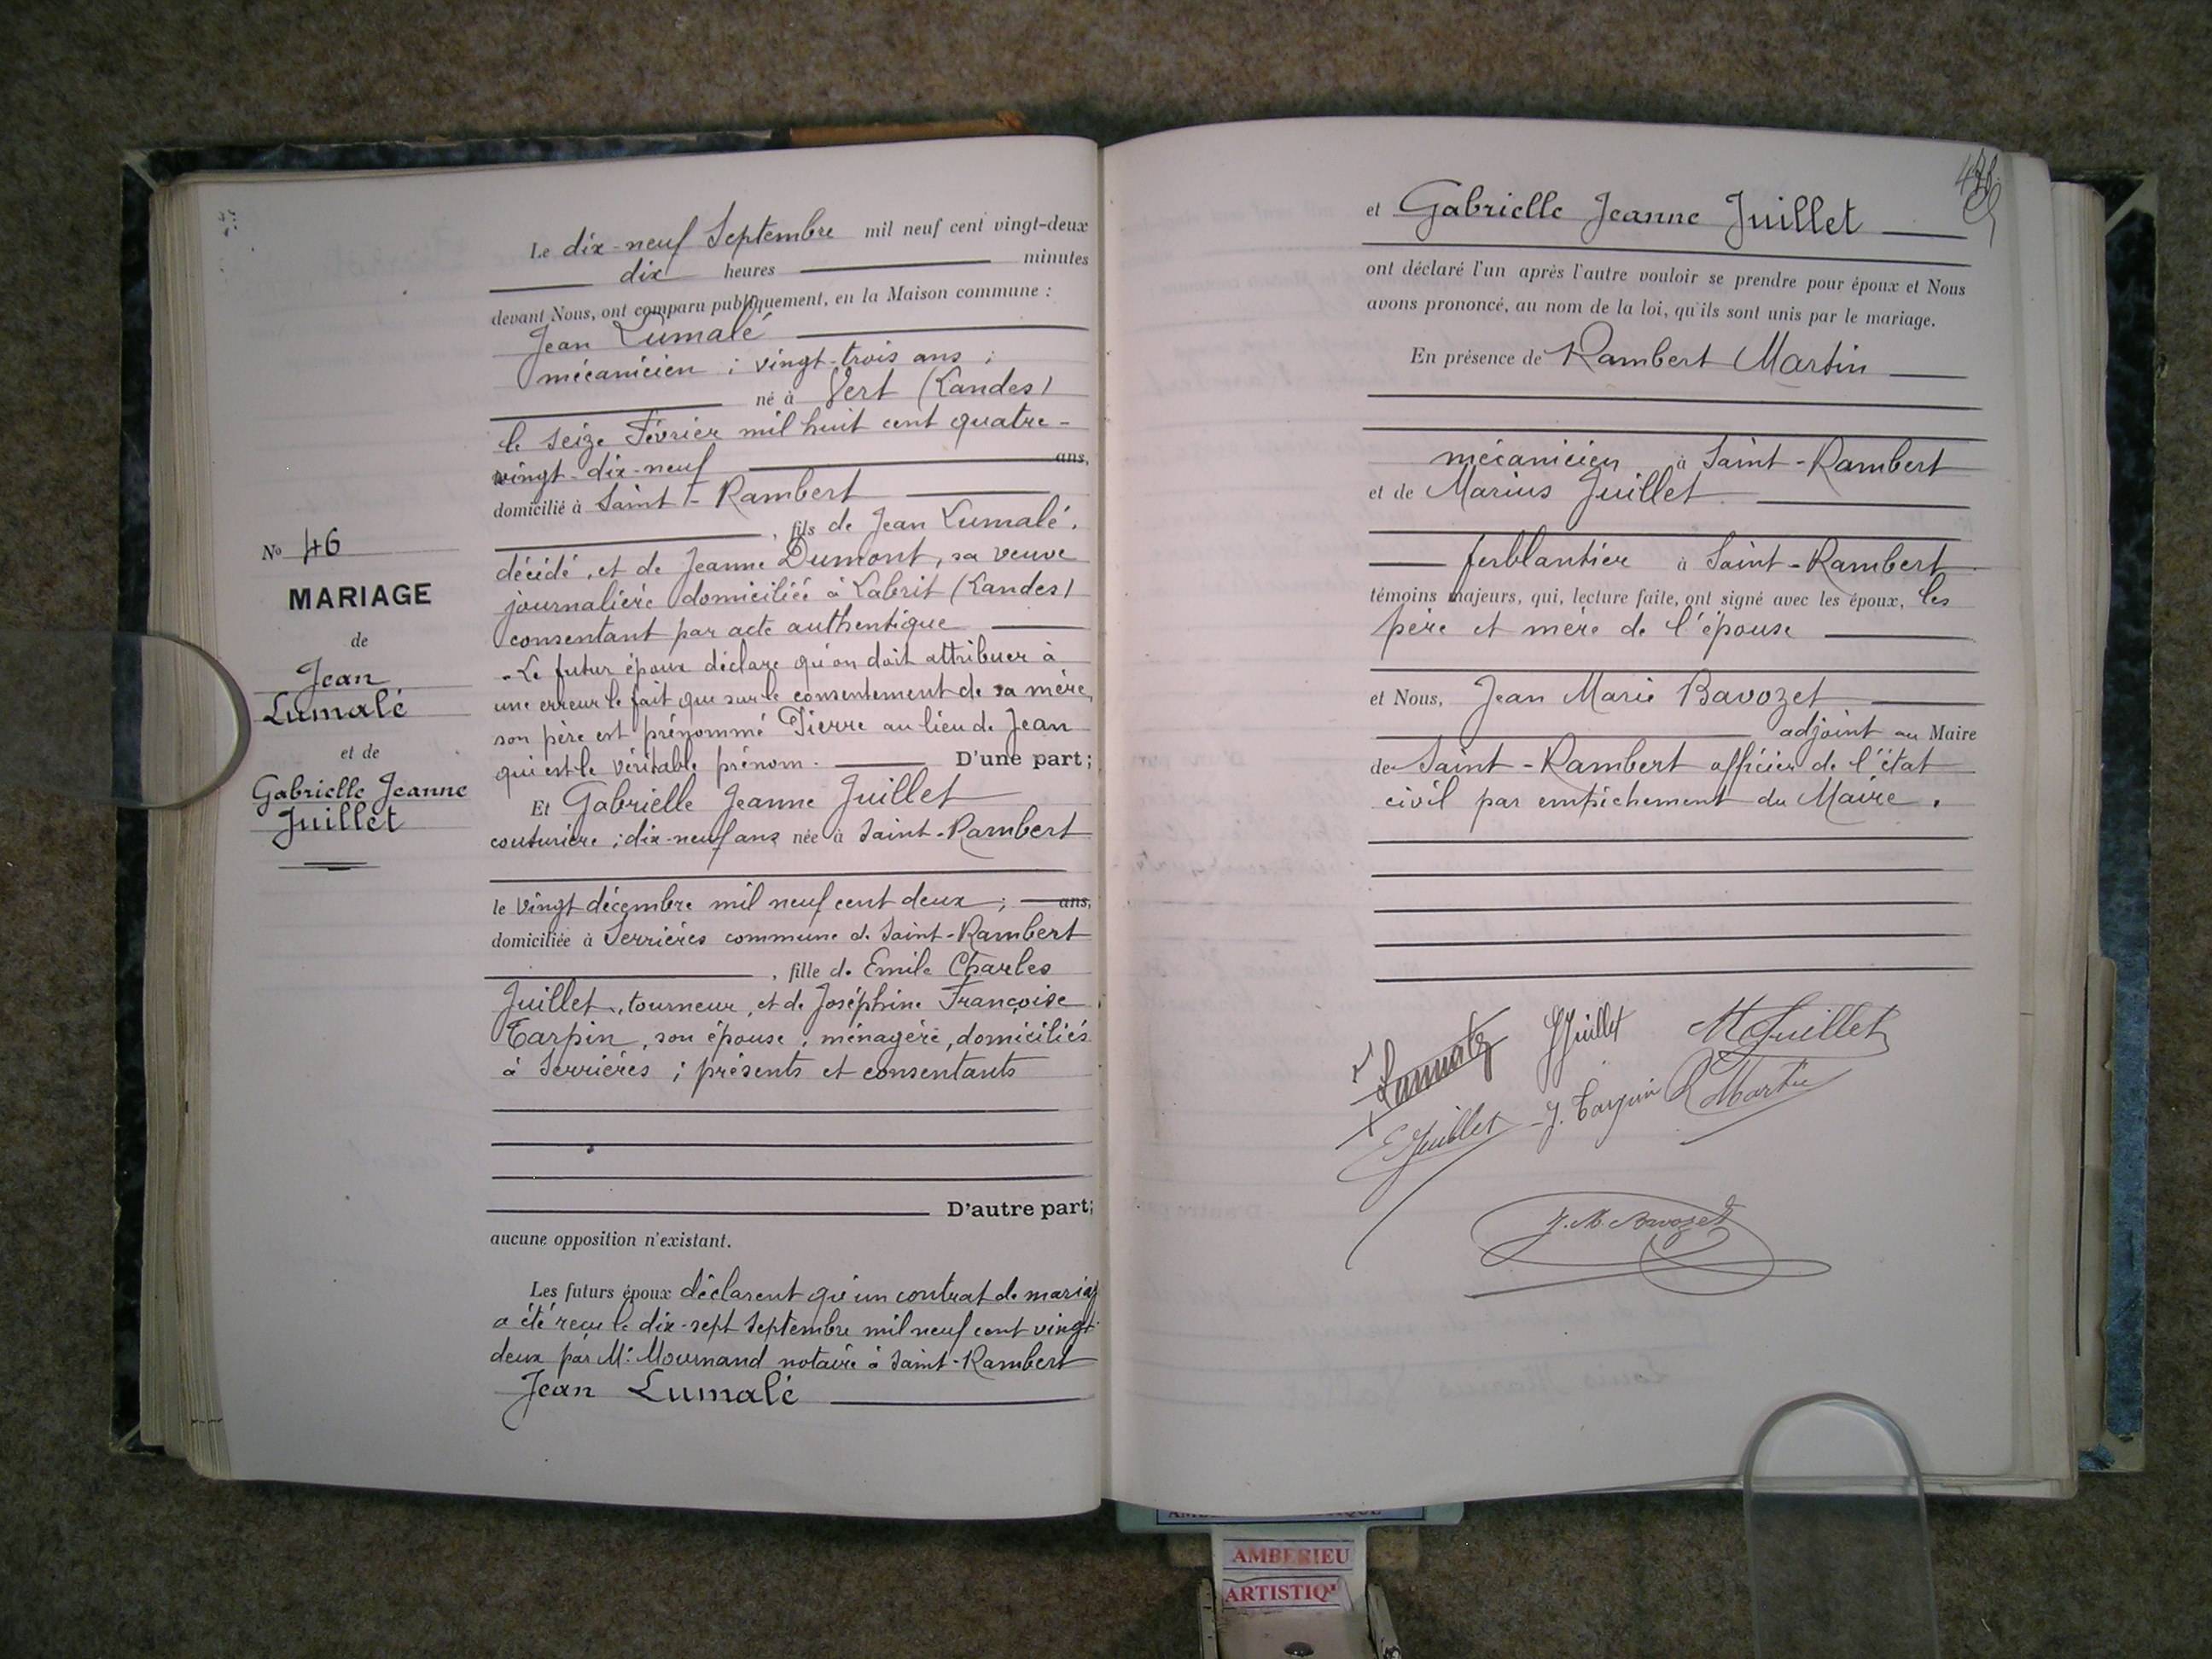 N° 46
MARIAGE
de
Jean
Lumalé
et de
Gabrielle Jeanne
Juillet
Le dix-neuf Septembre mil neuf cent vingt-deux
dix heures minutes
devant Nous, ont comparu publiquement, en la Maison commune :
Jean Lumalé
mécanicien ; vingt-trois ans ;
né à Vert (Landes)
le seize Février mil huit cent quatre-
vingt-dix-neuf ans,
domicilié à Saint-Rambert
, fils de Jean Lumalé,
décédé, et de Jeanne Dumont, sa veuve
journalière domiciliée à Labrit (Landes)
consentant par acte authentique
- Le futur époux déclare qu'on doit attribuer à
une erreur le fait que sur le consentement de sa mère,
son père est prénommé Pierre au lieu de Jean
qui est le véritable prénom. D'une part;
Et Gabrielle Jeanne Juillet
couturière ; dix-neuf ans née à Saint-Rambert
le vingt décembre mil neuf cent deux ; ans,
domiciliée à Serrières commune de Saint-Rambert
, fille de Emile Charles
Juillet, tourneur, et de Joséphine Françoise
Tarpin, son épouse, ménagère, domiciliés
à Serrières ; présents et consentants
D'autre part;
aucune opposition n'existant.
Les futurs époux déclarent qu'un contrat de mariag
a été reçu le dix-sept Septembre mil neuf cent vingt-
deux par Me Mournand notaire à Saint-Rambert
Jean Lumalé
et Gabrielle Jeanne Juillet
ont déclaré l'un après l'autre vouloir se prendre pour époux et Nous
avons prononcé, au nom de la loi, qu'ils sont unis par le mariage.
En présence de Rambert Martin
mécanicien à Saint-Rambert
et de Marius Juillet
ferblantier à Saint-Rambert
témoins majeurs, qui, lecture faite, ont signé avec les époux, les
père et mère de l'épouse
et Nous, Jean Marie Bavozet
adjoint au Maire
de Saint-Rambert officier de l'état
civil par empêchement du Maire.
GJuillet M Juillet
E Juillet J. Tarpin R Martin
J. M. Bavozet
AMBERIEU
ARTISTIQ